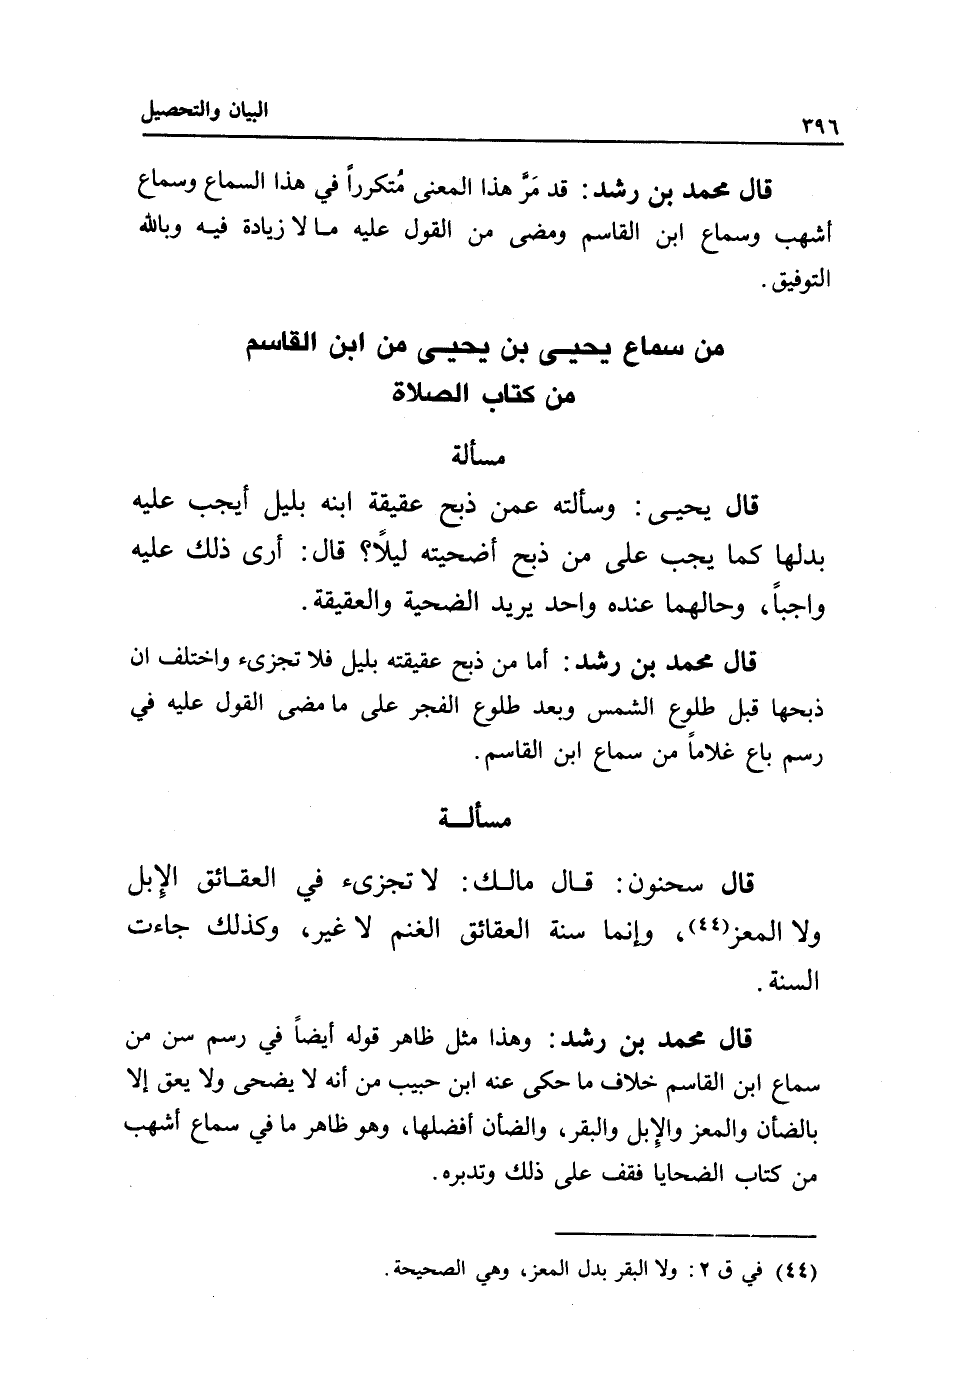 ٣٩٦
البيان والتحصيل
قال محمد بن رشد: قد مَرَّ هذا المعنى مُتكرراً في هذا السماع وسماع
أشهب وسماع ابن القاسم ومضى من القول عليه ما لا زيادة فيه وبالله
التوفيق.
من سماع يحيى بن يحيى من ابن القاسم
من كتاب الصلاة
مسألة
قال يحيى: وسألته عمن ذبح عقيقة ابنه بليل أيجب عليه
بدلها كما يجب على من ذبح أضحيته ليلًا؟ قال: أرى ذلك عليه
واجباً، وحالهما عنده واحد يريد الضحية والعقيقة.
قال محمد بن رشد: أما من ذبح عقيقته بليل فلا تجزىء واختلف ان
ذبحها قبل طلوع الشمس وبعد طلوع الفجر على ما مضى القول عليه في
رسم باع غلاماً من سماع ابن القاسم.
مسألة
قال سحنون: قال مالك: لا تجزىء في العقائق الإبل
ولا المعز(٤٤)، وإنما سنة العقائق الغنم لا غير، وكذلك جاءت
السنة.
قال محمد بن رشد: وهذا مثل ظاهر قوله أيضاً في رسم سن من
سماع ابن القاسم خلاف ما حكى عنه ابن حبيب من أنه لا يضحى ولا يعق إلا
بالضأن والمعز والإبل والبقر، والضأن أفضلها، وهو ظاهر ما في سماع أشهب
من كتاب الضحايا فقف على ذلك وتدبره.
(٤٤) في ق ٢: ولا البقر بدل المعز، وهي الصحيحة.